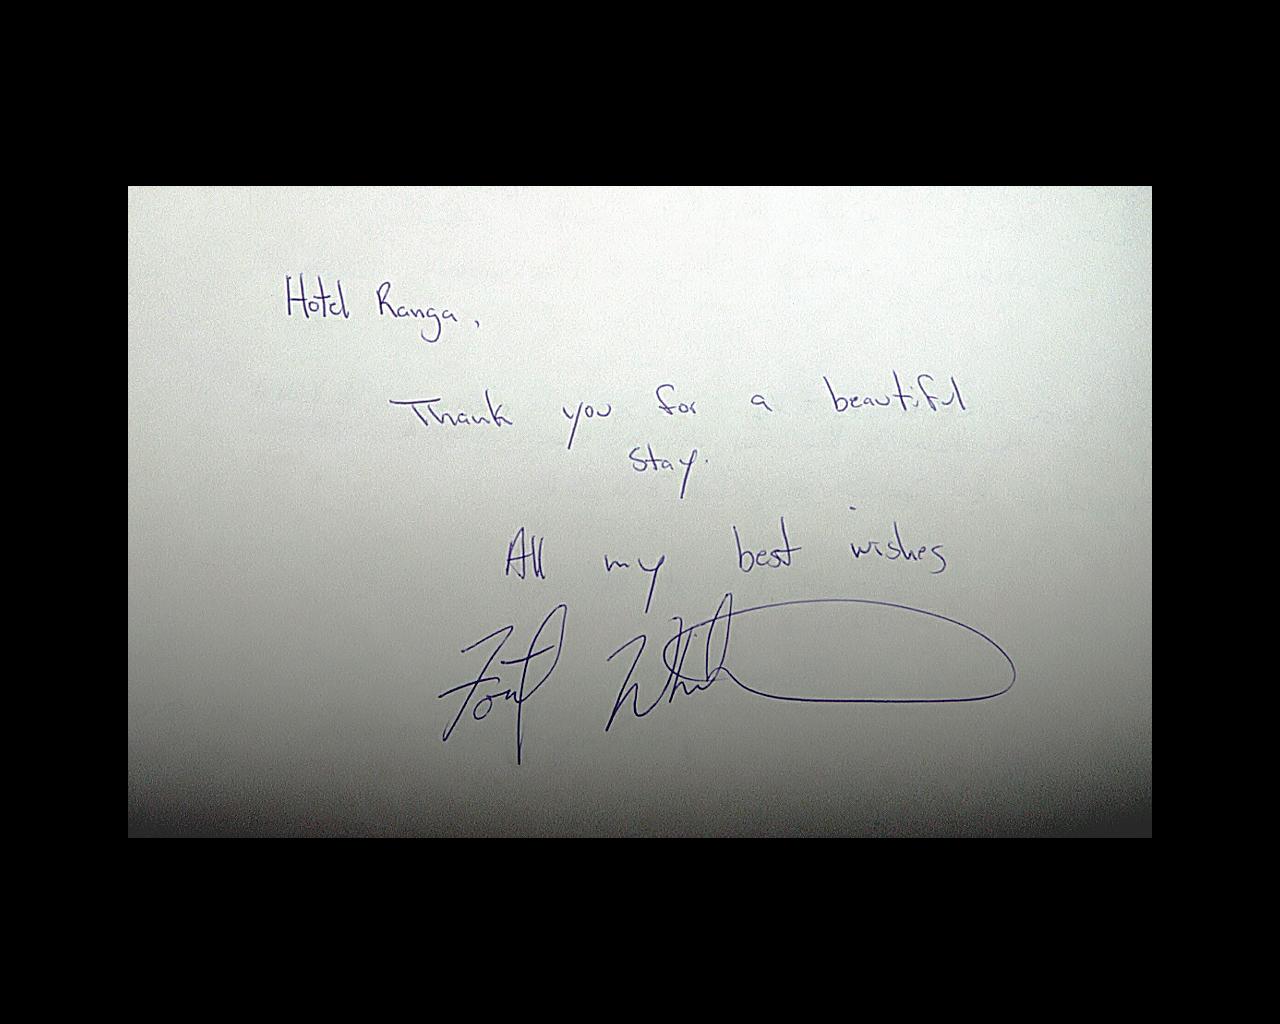 Hotel Ranga,
Thank you for a beautiful
stay.
All my best wishes